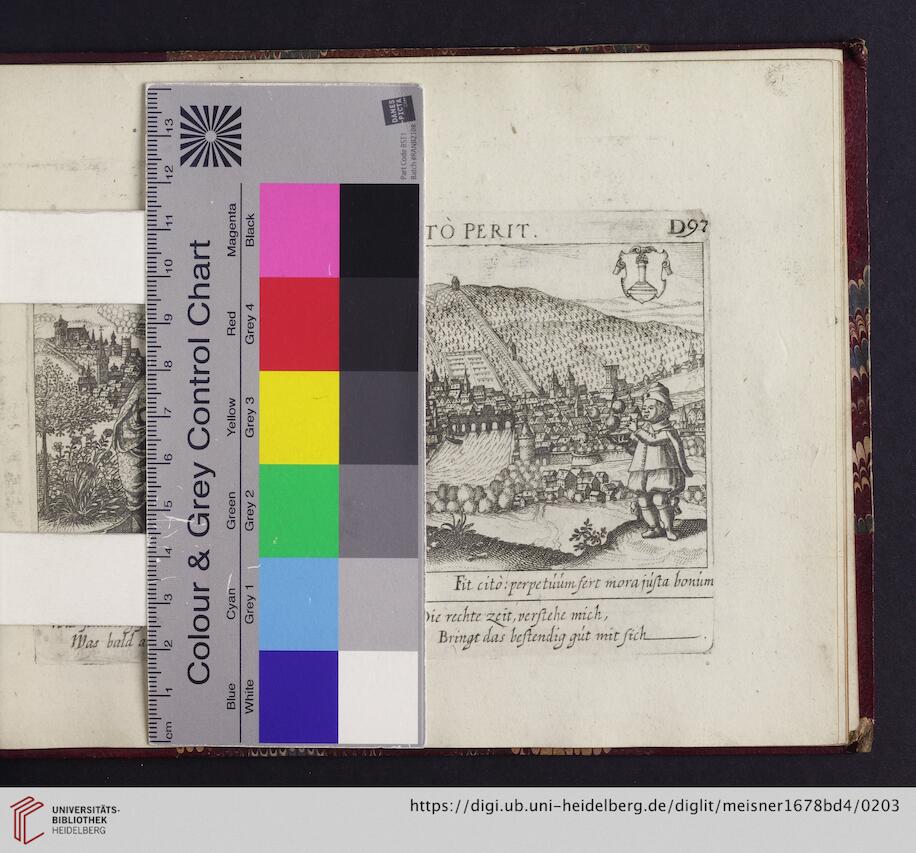 TÒ PERIT.
D97
Fit citò: perpetúúm fert mora jústa bonúm
Die rechte zeit, verstehe mich,
Bringt das bestendig gút mit sich
Was bald a
Colour & Grey Control Chart
Blue Cyan Green Yellow Red Magenta
White Grey 1 Grey 2 Grey 3 Grey 4 Black
cm 1 2 3 4 5 6 7 8 9 10 11 12 13
DANES
-PICTA
.COM
Part Code BST1
UNIVERSITÄTS-
BIBLIOTHEK
HEIDELBERG
https://digi.ub.uni-heidelberg.de/diglit/meisner1678bd4/0203